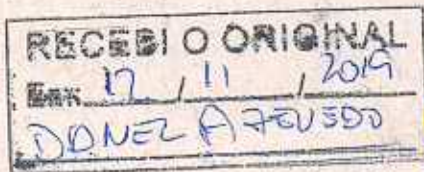 RECEBI O ORIGINAL
Em: 12 / 11 / 2019
DANEZ AZEVEDO